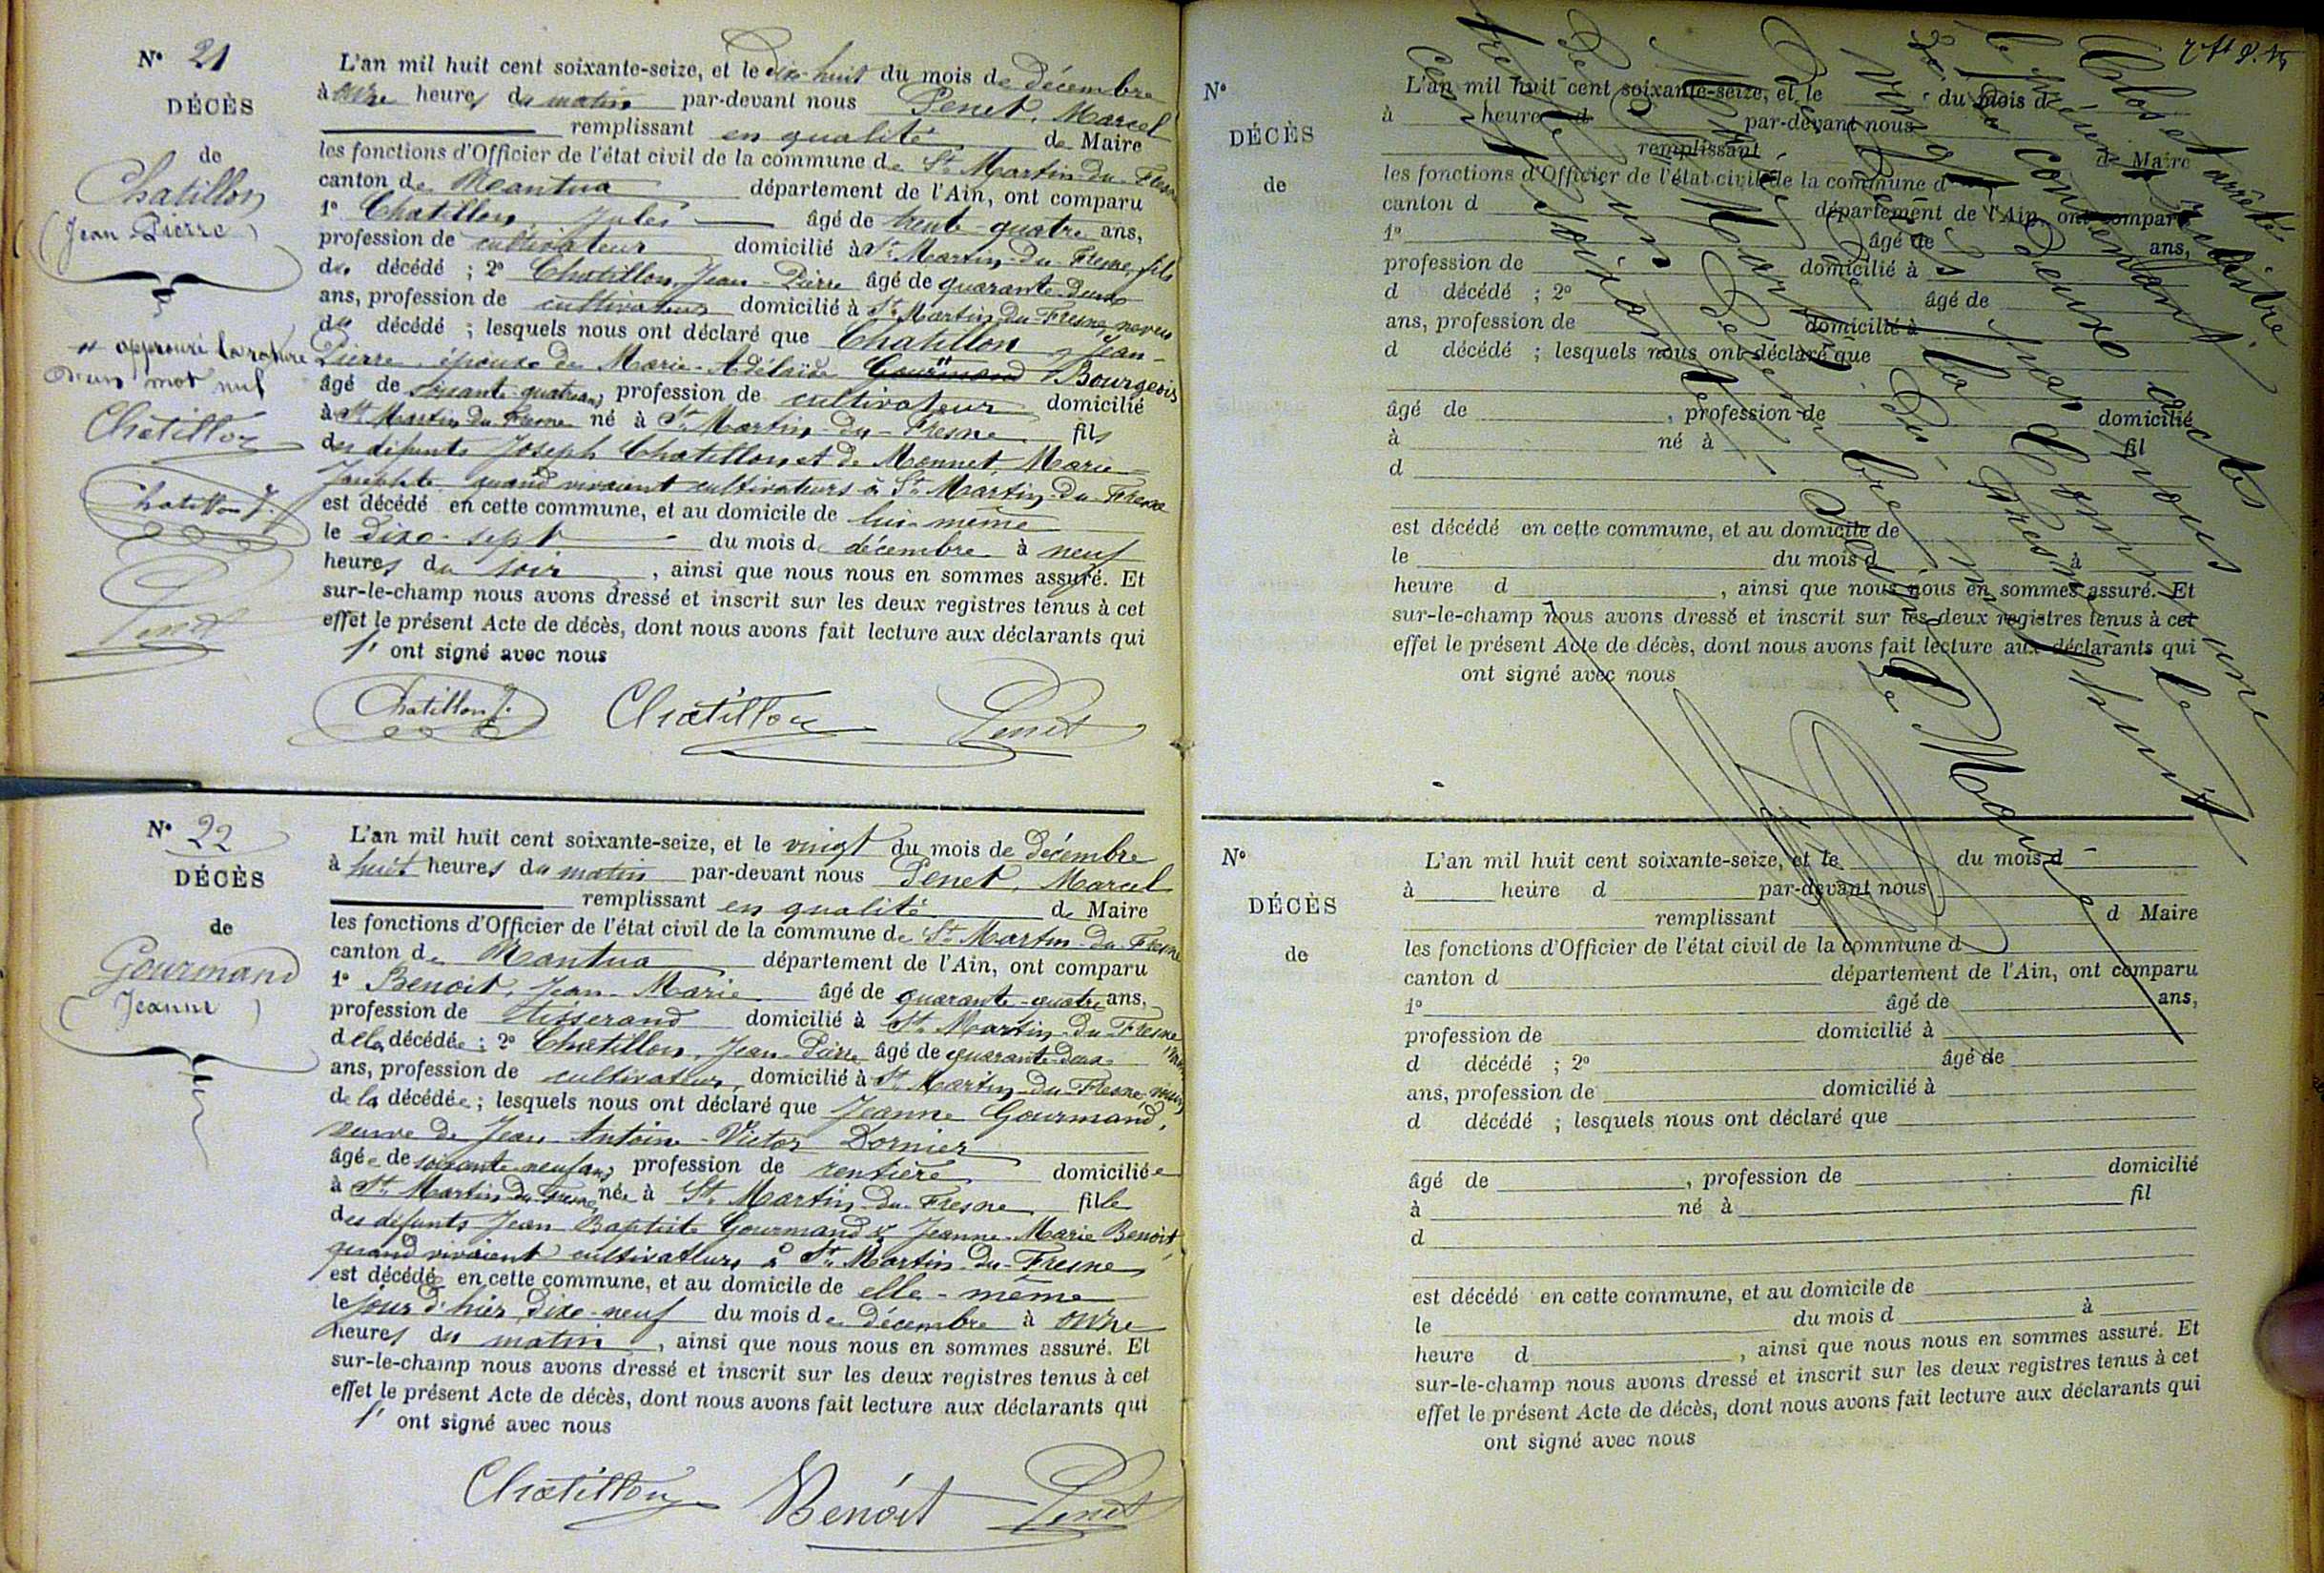 N° 21
DÉCÈS
de
Chatillon
(Jean-Pierre)
approuvé la rature
d'un mot nul
Chatillon
Chatillon J.
Penet
L'an mil huit cent soixante-seize, et le dix-huit du mois de décembre
à onze heures du matin par-devant nous Penet, Marcel
remplissant en qualité de Maire
les fonctions d'Officier de l'état civil de la commune de St Martin-du-Fresne
canton de Nantua département de l'Ain, ont comparu
1° Chatillon, Jules âgé de trente-quatre ans,
profession de cultivateur domicilié à St Martin-du-Fresne, fils
du décédé ; 2° Chatillon, Jean-Pierre âgé de quarante-deux
ans, profession de cultivateur domicilié à St Martin-du-Fresne, neveu
du décédé ; lesquels nous ont déclaré que Chatillon Jean-
Pierre, époux de Marie-Adélaïde Gourmand Bourgeois
âgé de soixante-quatre ans, profession de cultivateur domicilié
à St Martin du Fresne né à St Martin-du-Fresne fils
des défunts Joseph Chatillon et de Monnet, Marie-
Josephte quand vivaient cultivateurs à St Martin-du-Fresne
est décédé en cette commune, et au domicile de lui-même
le dix-sept du mois de décembre à neuf
heures du soir, ainsi que nous nous en sommes assuré. Et
sur-le-champ nous avons dressé et inscrit sur les deux registres tenus à cet
effet le présent Acte de décès, dont nous avons fait lecture aux déclarants qui
ont signé avec nous
Chatillon J. Chatillon Penet
N° 22
DÉCÈS
de
Gourmand
(Jeanne)
L'an mil huit cent soixante-seize, et le vingt du mois de décembre
à huit heures du matin par-devant nous Penet, Marcel
remplissant en qualité de Maire
les fonctions d'Officier de l'état civil de la commune de St Martin-du-Fresne
canton de Nantua département de l'Ain, ont comparu
1° Benoit, Jean-Marie âgé de quarante-quatre ans,
profession de tisserand domicilié à St Martin-du-Fresne
de la décédée ; 2° Chatillon, Jean-Pierre âgé de quarante-deux
ans, profession de cultivateur, domicilié à St Martin-du-Fresne
de la décédée ; lesquels nous ont déclaré que Jeanne Gourmand,
veuve de Jean Antoine-Victor Dornier
âgée de soixante-neuf ans, profession de rentière domiciliée
à St Martin du Fresne née à St Martin-du-Fresne fille
des défunts Jean Baptiste Gourmand & Jeanne-Marie Benoit,
quand vivaient cultivateurs à St Martin-du-Fresne
est décédée en cette commune, et au domicile de elle-même
le jour d'hier, dix-neuf du mois de décembre à onze
heures du matin, ainsi que nous nous en sommes assuré. Et
sur-le-champ nous avons dressé et inscrit sur les deux registres tenus à cet
effet le présent Acte de décès, dont nous avons fait lecture aux déclarants qui
ont signé avec nous
Chatillon Benoit Penet
N°
DÉCÈS
de
L'an mil huit cent soixante-seize, et le du mois d
à heure d par-devant nous
remplissant d Maire
les fonctions d'Officier de l'état civil de la commune d
canton d département de l'Ain, ont comparu
1° âgé de ans,
profession de domicilié à
d décédé ; 2° âgé de
ans, profession de domicilié à
d décédé ; lesquels nous ont déclaré que
âgé de , profession de domicilié
à né à fil
d
est décédé en cette commune, et au domicile de
le du mois d à
heure d , ainsi que nous nous en sommes assuré. Et
sur-le-champ nous avons dressé et inscrit sur les deux registres tenus à cet
effet le présent Acte de décès, dont nous avons fait lecture aux déclarants qui
ont signé avec nous
Clos et arrêté
le présent registre
contenant
vingt deux actes
par nous
Maire de la Commune
de St Martin du Fresne
le trente un Décembre mil huit
cent soixante
Le Maire
N°
DÉCÈS
de
L'an mil huit cent soixante-seize, et le du mois d
à heure d par-devant nous
remplissant d Maire
les fonctions d'Officier de l'état civil de la commune d
canton d département de l'Ain, ont comparu
1° âgé de ans,
profession de domicilié à
d décédé ; 2° âgé de
ans, profession de domicilié à
d décédé ; lesquels nous ont déclaré que
âgé de , profession de domicilié
à né à fil
d
est décédé en cette commune, et au domicile de
le du mois d à
heure d , ainsi que nous nous en sommes assuré. Et
sur-le-champ nous avons dressé et inscrit sur les deux registres tenus à cet
effet le présent Acte de décès, dont nous avons fait lecture aux déclarants qui
ont signé avec nous